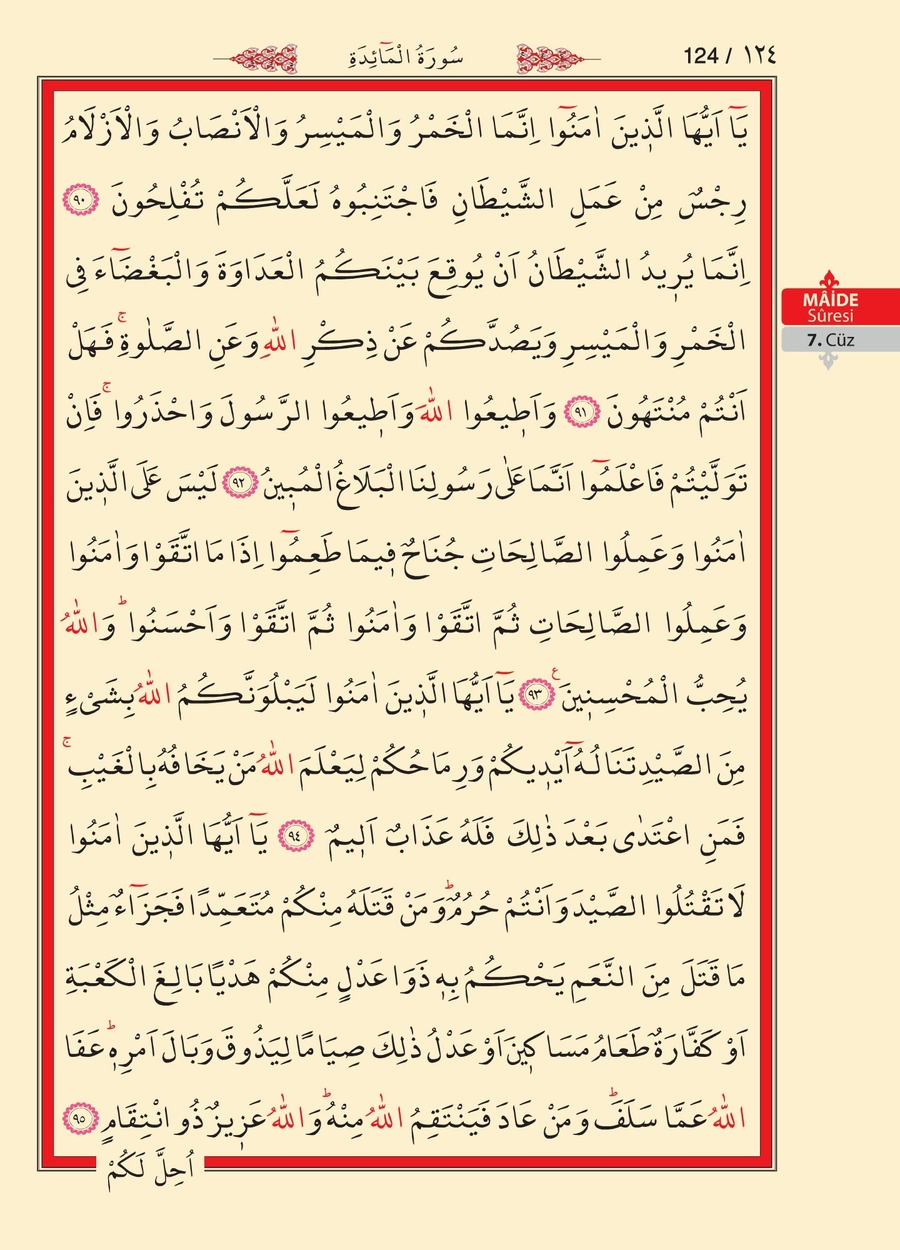 124 / ١٢٤
سُورَةُ الْمَٓائِدَةِ
يَٓا اَيُّهَا الَّذ۪ينَ اٰمَنُٓوا اِنَّمَا الْخَمْرُ وَالْمَيْسِرُ وَالْاَنْصَابُ وَالْاَزْلَامُ
رِجْسٌ مِنْ عَمَلِ الشَّيْطَانِ فَاجْتَنِبُوهُ لَعَلَّكُمْ تُفْلِحُونَ ﴿٩٠﴾
اِنَّمَا يُر۪يدُ الشَّيْطَانُ اَنْ يُوقِعَ بَيْنَكُمُ الْعَدَاوَةَ وَالْبَغْضَٓاءَ فِي
الْخَمْرِ وَالْمَيْسِرِ وَيَصُدَّكُمْ عَنْ ذِكْرِ اللّٰهِ وَعَنِ الصَّلٰوةِۚ فَهَلْ
اَنْتُمْ مُنْتَهُونَ ﴿٩١﴾ وَاَط۪يعُوا اللّٰهَ وَاَط۪يعُوا الرَّسُولَ وَاحْذَرُواۚ فَاِنْ
تَوَلَّيْتُمْ فَاعْلَمُٓوا اَنَّمَا عَلٰى رَسُولِنَا الْبَلَاغُ الْمُب۪ينُ ﴿٩٢﴾ لَيْسَ عَلَى الَّذ۪ينَ
اٰمَنُوا وَعَمِلُوا الصَّالِحَاتِ جُنَاحٌ ف۪يمَا طَعِمُٓوا اِذَا مَا اتَّقَوْا وَاٰمَنُوا
وَعَمِلُوا الصَّالِحَاتِ ثُمَّ اتَّقَوْا وَاٰمَنُوا ثُمَّ اتَّقَوْا وَاَحْسَنُواۜ وَاللّٰهُ
يُحِبُّ الْمُحْسِن۪ينَ۟ ﴿٩٣﴾ يَٓا اَيُّهَا الَّذ۪ينَ اٰمَنُوا لَيَبْلُوَنَّكُمُ اللّٰهُ بِشَيْءٍ
مِنَ الصَّيْدِ تَنَالُهُٓ اَيْد۪يكُمْ وَرِمَاحُكُمْ لِيَعْلَمَ اللّٰهُ مَنْ يَخَافُهُ بِالْغَيْبِۚ
فَمَنِ اعْتَدٰى بَعْدَ ذٰلِكَ فَلَهُ عَذَابٌ اَل۪يمٌ ﴿٩٤﴾ يَٓا اَيُّهَا الَّذ۪ينَ اٰمَنُوا
لَا تَقْتُلُوا الصَّيْدَ وَاَنْتُمْ حُرُمٌۜ وَمَنْ قَتَلَهُ مِنْكُمْ مُتَعَمِّدًا فَجَزَٓاءٌ مِثْلُ
مَا قَتَلَ مِنَ النَّعَمِ يَحْكُمُ بِه۪ ذَوَا عَدْلٍ مِنْكُمْ هَدْيًا بَالِغَ الْكَعْبَةِ
اَوْ كَفَّارَةٌ طَعَامُ مَسَاك۪ينَ اَوْ عَدْلُ ذٰلِكَ صِيَامًا لِيَذُوقَ وَبَالَ اَمْرِه۪ۜ عَفَا
اللّٰهُ عَمَّا سَلَفَۜ وَمَنْ عَادَ فَيَنْتَقِمُ اللّٰهُ مِنْهُۜ وَاللّٰهُ عَز۪يزٌ ذُو انْتِقَامٍ ﴿٩٥﴾
اُحِلَّ لَكُمْ
MÂİDE
Sûresi
7. Cüz